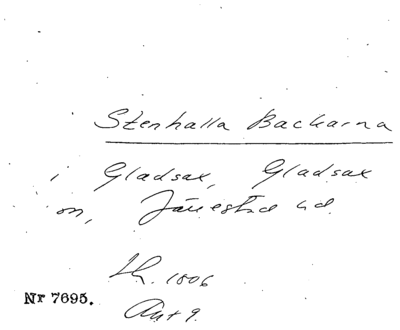 Stenhalla Backarna
i Gladsax, Gladsax
sn, Järrestad hd.
Lh. 1806
Nr 7695.
Akt 9.